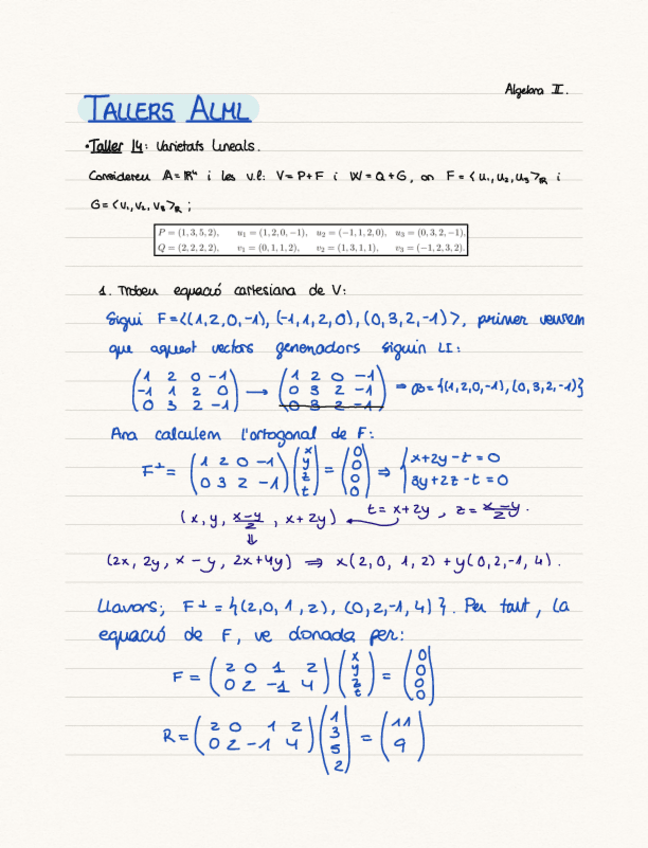 Algebra II.
TALLERS ALML
• Taller 14: Varietats lineals.
Considereu A=ℝ⁴ i les v.l: V=P+F i W=Q+G, on F=<u₁,u₂,u₃>ℝ i
G=<v₁,v₂,v₃>ℝ ;
P = (1, 3, 5, 2), u₁ = (1, 2, 0, −1), u₂ = (−1, 1, 2, 0), u₃ = (0, 3, 2, −1),
Q = (2, 2, 2, 2), v₁ = (0, 1, 1, 2), v₂ = (1, 3, 1, 1), v₃ = (−1, 2, 3, 2).
1. Trobeu equació cartesiana de V:
Sigui F=<(1,2,0,-1), (-1,1,2,0), (0,3,2,-1)>, primer veurem
que aquest vectors generadors siguin LI:
(1 2 0 -1; -1 1 2 0; 0 3 2 -1) → (1 2 0 -1; 0 3 2 -1; 0 3 2 -1) ⇒ B={(1,2,0,-1), (0,3,2,-1)}
Ara calculem l'ortogonal de F:
F⊥ = (1 2 0 -1; 0 3 2 -1)(x; y; z; t) = (0; 0; 0; 0) ⇒ {x+2y-t=0; 3y+2z-t=0
(x, y, (x-y)/2, x+2y) ← t=x+2y, z=(x-y)/2.
⇓
(2x, 2y, x-y, 2x+4y) ⇒ x(2,0,1,2)+y(0,2,-1,4).
Llavors; F⊥={(2,0,1,2), (0,2,-1,4)}. Per tant, la
equació de F, ve donada per:
F = (2 0 1 2; 0 2 -1 4)(x; y; z; t) = (0; 0; 0; 0)
R = (2 0 1 2; 0 2 -1 4)(1; 3; 5; 2) = (11; 9)